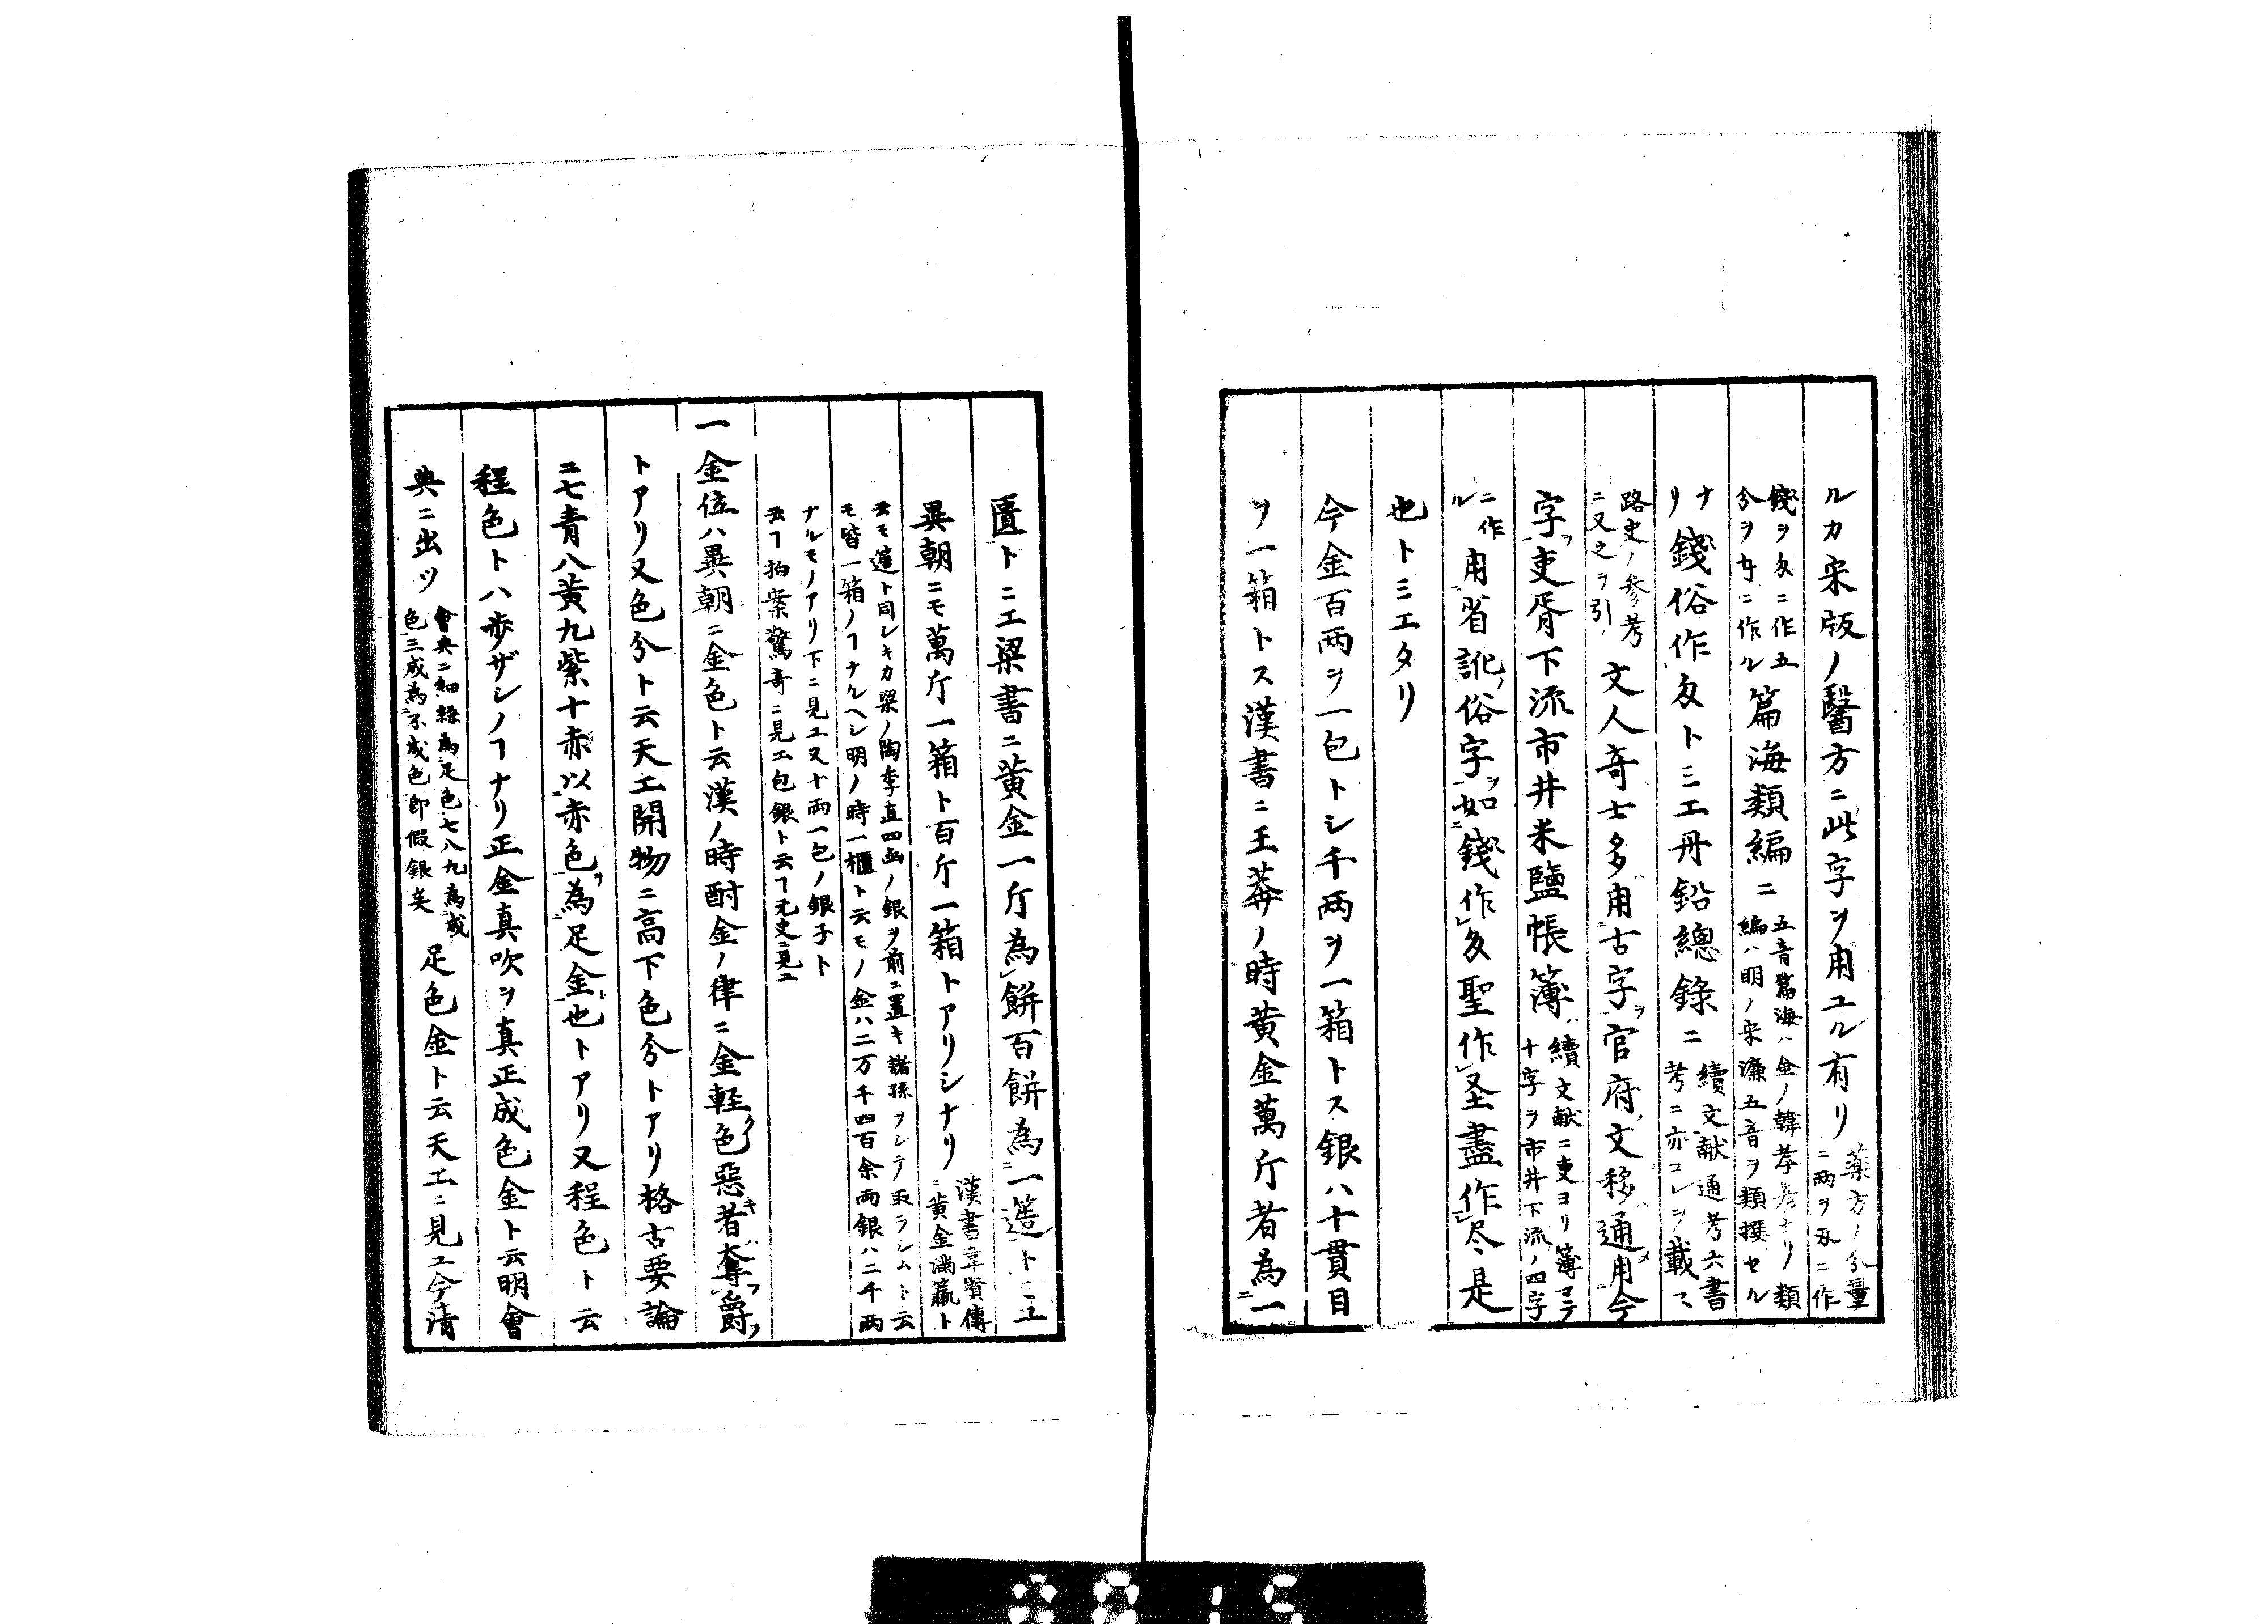 ルカ宋版ノ醫方ニ此字ヲ用ユル有リ
藥方ノ分量
ニ兩ヲ刄ニ作
錢ヲ夂ニ作五
分ヲ
ニ作ル
篇海類編ニ
五音篇海ハ金ノ韓孝彦ナリ類
編ハ明ノ宋濂五音ヲ類撰セル
ナ
リ
錢俗作夂トミエ丹鉛總錄ニ
續文献通考六書
考ニ亦コレヲ載
路史ノ参考
ニ又之ヲ引
文人奇士多用古字ヲ官府文移通用今
字吏胥下流市井米鹽帳簿
續文献ニ吏ヨリ簿マテ
十字ヲ市井下流ノ四字
ニ作
ル
用省訛俗字ヲ如錢作夂聖作圣盡作尽是
也トミエタリ
今金百両ヲ一包トシ千両ヲ一箱トス銀八十貫目
ヲ一箱トス漢書ニ王莽ノ時黄金萬斤者為一
匱トニエ梁書ニ黄金一斤為餅百餅為一簉トミユ
異朝ニモ萬斤一箱ト百斤一箱トアリシナリ
漢書韋賢傳
ニ黄金満籯ト
云モ簉ト同シキカ梁ノ陶季直四函ノ銀ヲ前ニ置キ諸孫ヲシテ取ラシムト云
モ皆一箱ノヿナルヘシ明ノ時一櫃ト云モノ金ハ二万千四百余両銀ハ二千両
ナルモノアリ下ニ見ユ又十両一包ノ銀子ト
云ヿ拍案驚奇ニ見エ包銀ト云ヿ元史ニ見ユ
一金位ハ異朝ニ金色ト云漢ノ時酎金ノ律ニ金軽ク色惡キ者ハ奪フ爵ヲ
トアリ又色分ト云天工開物ニ高下色分トアリ格古要論
ニ七青八黄九紫十赤以赤色ヲ為足金ト也トアリ又程色ト云
程色トハ歩ザシノヿナリ正金真吹ヲ真正成色金ト云明會
典ニ出ツ
會典ニ細絲為足色七八九為成
色三成為不成色即假銀矣
足色金ト云天工ニ見ユ今清